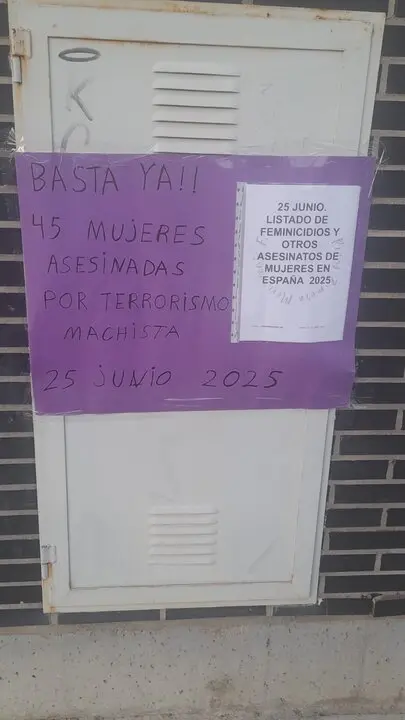 BASTA YA!!
45 MUJERES
ASESINADAS
POR TERRORISMO
MACHISTA
25 JUNIO 2025
25 JUNIO.
LISTADO DE
FEMINICIDIOS Y
OTROS
ASESINATOS DE
MUJERES EN
ESPAÑA 2025